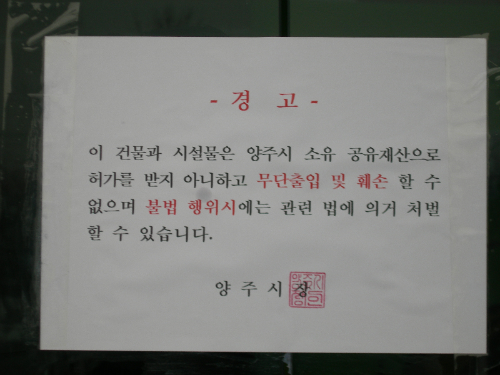 - 경 고 -
이 건물과 시설물은 양주시 소유 공유재산으로
허가를 받지 아니하고 무단출입 및 훼손 할 수
없으며 불법 행위시에는 관련 법에 의거 처벌
할 수 있습니다.
양 주 시 장